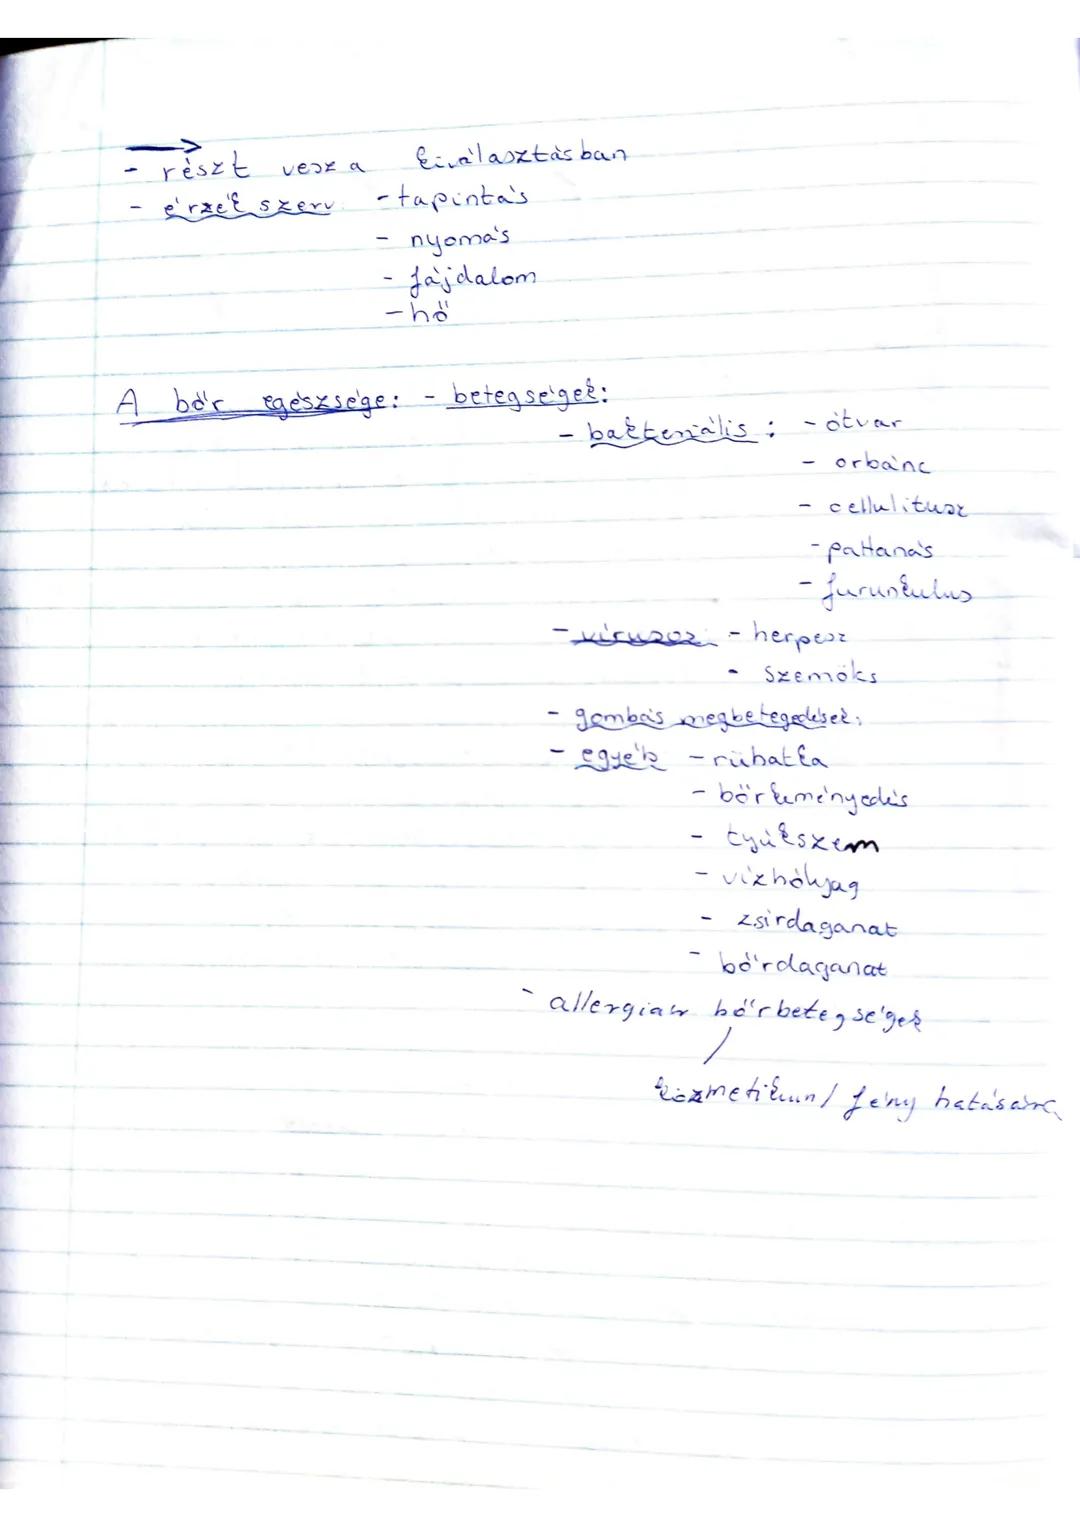 - részt vesz a kiválasztásban
- érzék szerv - tapintás
- nyomás
- fájdalom
- hő
A bőr egészsége: - betegségek:
- bakteriális : - ótvar
- orbánc
- cellulitusz
- pattanás
- furunkulus
- vírusos: - herpesz
- szemöks
- gombás megbetegedések:
- egyéb - rühatka
- bőrkeményedés
- tyúkszem
- vízhólyag
- zsírdaganat
- bőrdaganat
- allergiás bőrbetegségek
kozmetikum / fény hatásaira